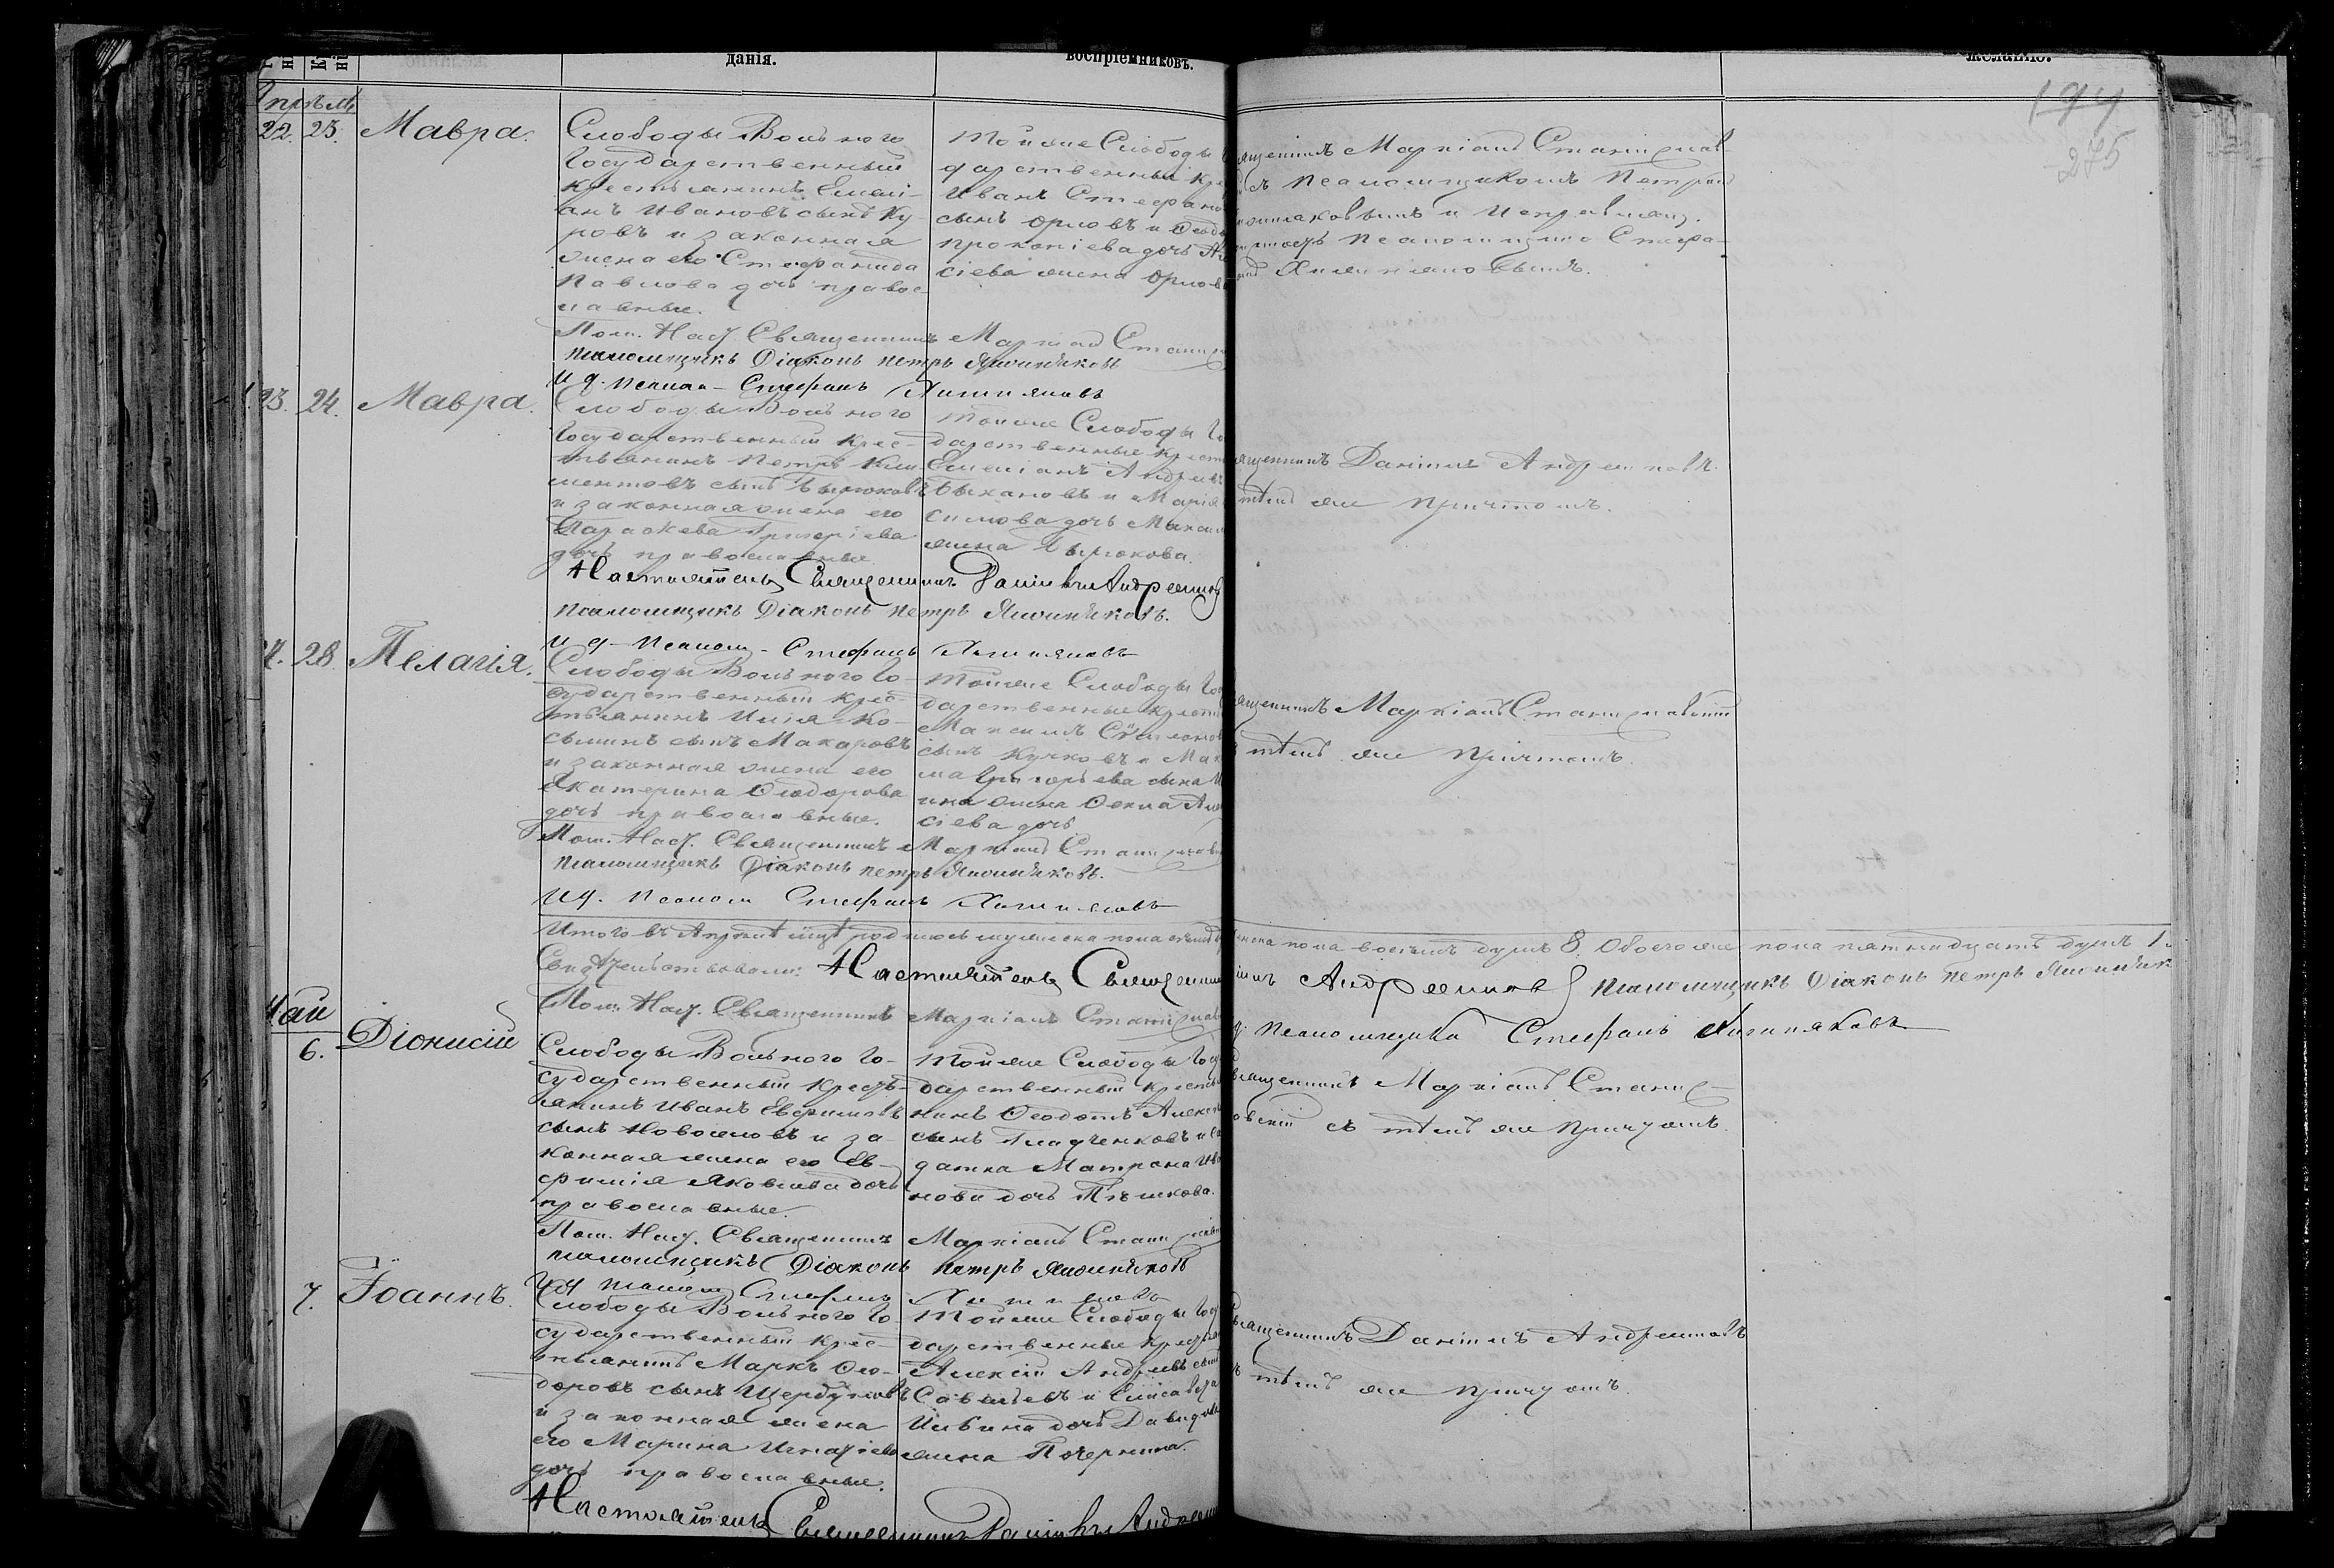 данія.
воспріемниковъ.
желанію.
194
275
Апрѣль
22. 23. Мавра.
Слободы Вольнаго
Государственный
крестьянинъ Емелі-
анъ Ивановъ сынъ Ку
ровъ и законная
жена его Стефанида
Павлова дочь правос-
лавные.
Тойже Слободы
дарственный кре
Иванъ Стефано
сынъ Орловъ и Ѳеодо
Прокопіева дочь
сіева жена Орлов
ященникъ Маркіанъ Станислав
съ Псаломщикомъ Петром
и Исправляющ.
должность Псаломщика Стефа-
Хижняковымъ.
Пом. Наст. Священникъ Маркіан Станисл
Псаломщикъ Діаконъ Петръ
И д. Псалом- Стефанъ Хижняковъ
23. 24. Мавра.
Слободы Вольнаго
Государственный Крес-
тьянинъ Петръ Кли-
ментовъ сынъ Бирюковъ
и законная жена его
Параскева Григоріева
дочь православные
Тойже Слободы Го
дарственные крест
Емеліанъ Андреевъ
Быкановъ и Марія
симова дочь Макси
жена Бирюкова.
ященникъ Даніилъ Андреенковъ.
тѣмъ же Причтомъ.
Настоятель Священникъ Даніилъ Андреенков
Псаломщикъ Діаконъ Петръ
И д- Псалом- Стефанъ Хижняковъ
28. Пелагія.
Слободы Вольнаго Го-
сударственный Крес-
тьянинъ Илія Ко-
сьминъ сынъ Макаровъ
и законная жена его
Екатерина Ѳеодорова
дочь православные.
Тойже Слободы Го
дарственные крест
Максимъ
сынъ Кучковъ и Мак
жена Алек
сіева дочь
ященникъ Маркіанъ Станиславскій
тѣмъ же Причтомъ.
Пом. Наст. Священникъ Маркіанъ Станиславс
Псаломщикъ Діаконъ Петръ
И д. Псалом Стефанъ Хижняковъ
Итого въ Апрѣлѣ мцѣ родилось мужеска пола семь женска пола восемь душъ 8. Обоего же пола пятнадцать душъ 1
Свидѣтельствовали: Настоятель Священник Андреенков Псаломщикъ Діаконъ Петръ
Пом. Наст. Священникъ Маркіанъ Станислав Псаломщика Стефанъ Хижняковъ
Май
6. Діонисій
Слободы Вольнаго Го-
сударственный Кресть-
янинъ Иванъ Евфимовъ
сынъ Новоселовъ и за-
конная жена его Ев-
фимія Яковлева дочь
православные.
Тойже Слободы Госу
дарственный Крестья
нинъ Ѳеодотъ Алекс
сынъ Гладченковъ и со
датка Матрона Ива
нова дочь Пѣшкова.
вященникъ Маркіанъ Станис-
овскій съ тѣмъ же Причтомъ.
Пом. Наст. Священникъ Маркіанъ Станислав
Псаломщикъ Діаконъ Петръ
И д Псалом Стефанъ Хижняковъ
7. Іоаннъ.
Слободы Вольнаго Го-
сударственный Крес-
тьянинъ Маркъ Ѳео-
доровъ сынъ
и законная жена
его Марина Игнатіева
дочь православные.
Тойже Слободы Госу
дарственные Крестья
Алексій Андреевъ сынъ
Савельевъ и Елисавета
дочь Давидова
жена
Священникъ Даніилъ Андреенковъ
тѣмъ же Причтомъ.
Настоятель Священникъ Даніилъ Андреен